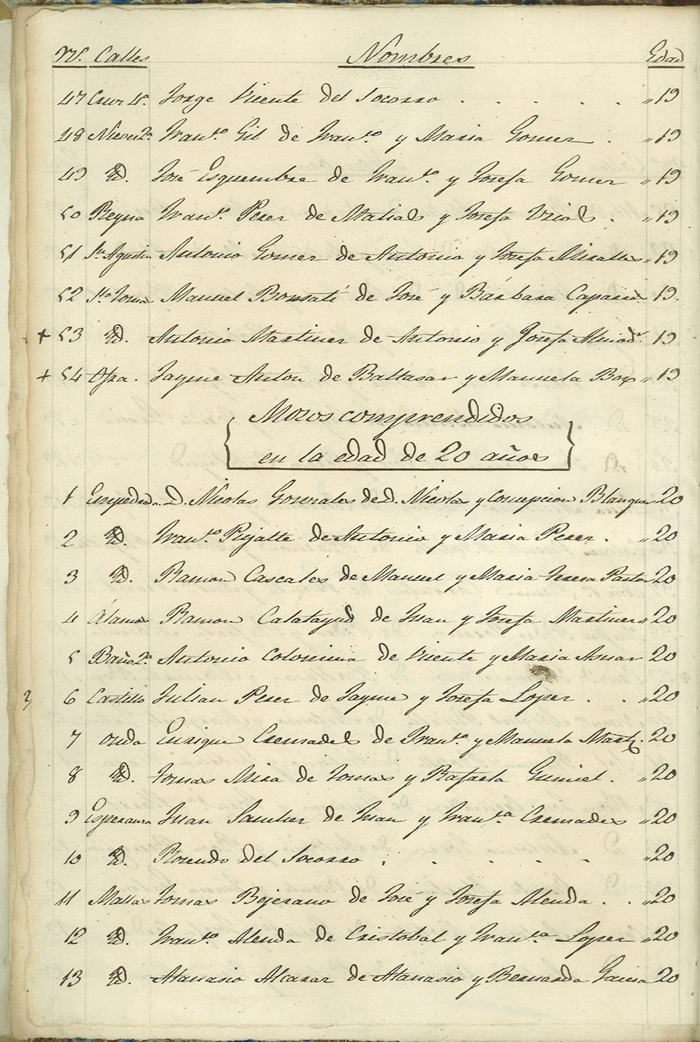 N.º Calles Nombres Edad
47 Cruz 4ª Jorge Vicente del Socorro . . . . . " 19
48 Nieves 2ª Franco. Gil de Franco. y Maria Gomez . " 19
49 Yd. José Esquembre de Franco. y Josefa Gomez " 19
50 Reyna Franco. Perez de Matias y Josefa Vidal . " 19
51 Sn. Agustin Antonio Gomez de Antonio y Josefa Miralles " 19
52 Sto. Tomas Manuel de José y Bárbara 19.
+ 53 Yd. Antonio Martinez de Antonio y Josefa " 19
+ 54 Ofra. Jayme Anton de Baltasar y Manuela " 19
Mozos comprendidos
en la edad de 20 años
1 Empedrada D. Nicolas Gonzales de D. Nicolas y Concepcion Blanquer 20
2 Yd. Franco. Rijalte de Antonio y Maria Perez . " 20
3 Yd. Ramon Cascales de Manuel y Maria Teresa Pastor 20
4 Álamo Ramon Calatayud de Juan y Josefa Martinez 20
5 Baño 2º Antonio Colomina de Vicente y Maria Aznar 20
3 6 Castillo Julian Perez de Jayme y Josefa Lopez . " 20
7 onda Enrique Cremades de Franco. y Manuela Martz. 20
8 Yd. Tomas Mira de Tomas y Rafaela . " 20
9 Esperanza Juan Sanchez de Juan y Franca. Cremades " 20
10 Yd. Rosendo del Socorro . . . . . " 20
11 Tomas Bejerano de José y Josefa Alenda . . " 20
12 Yd. Franco. Alenda de Cristobal y Franca. Lopez " 20
13 Yd. Atanasio Alcaraz de Atanasio y Bernarda Garcia 20